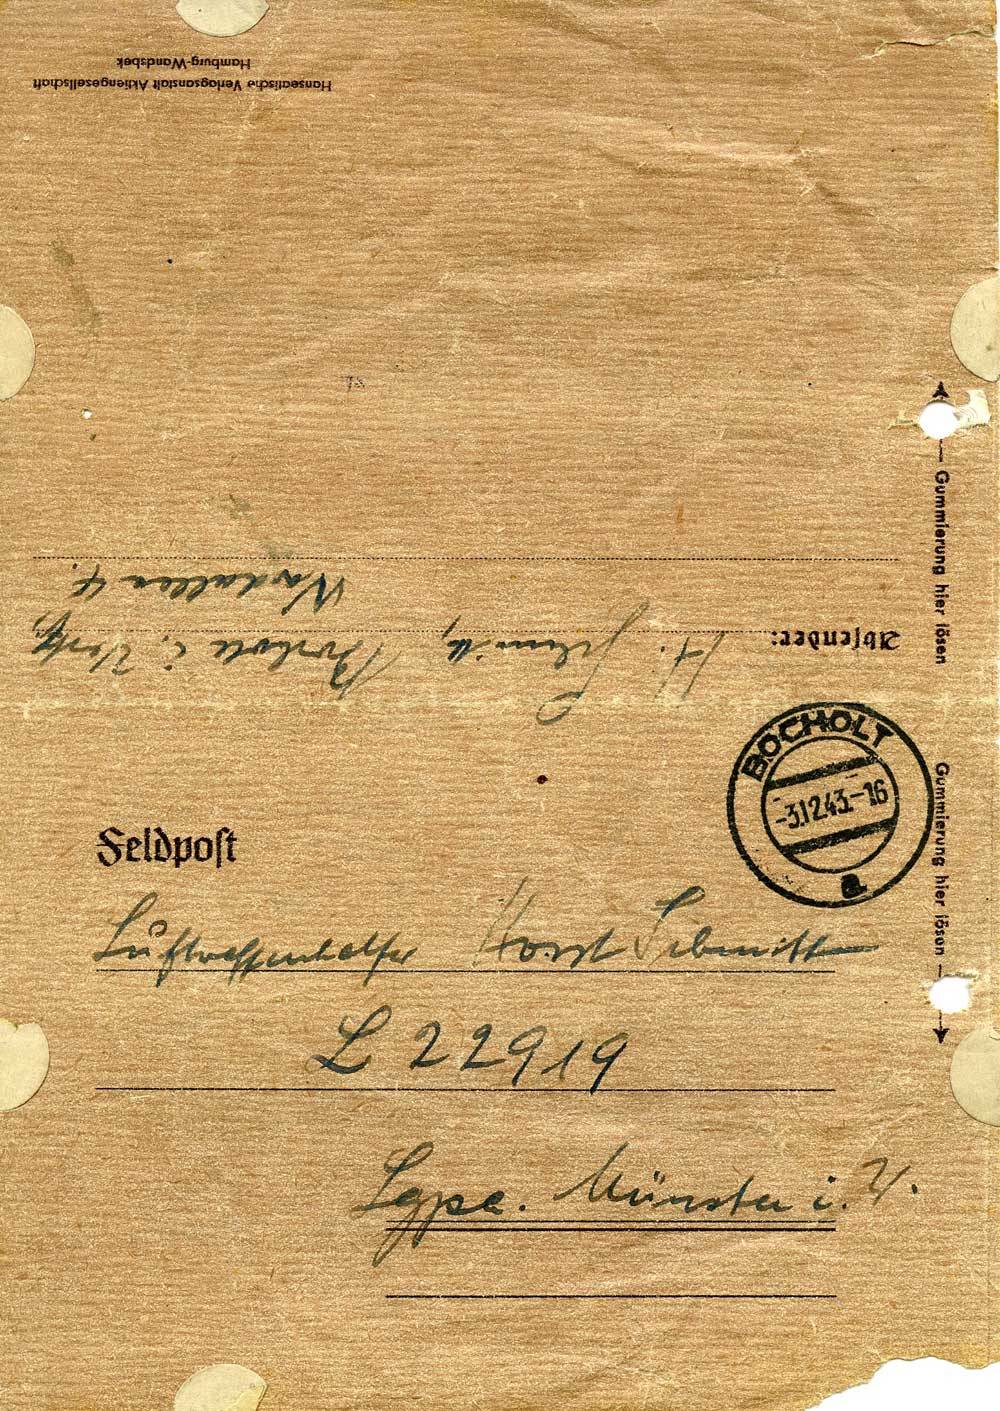 Hanseatische Verlagsanstalt Aktiengesellschaft
Hamburg-Wandsbek
78
Gummierung hier lösen
Gummierung hier lösen
Absender: H. Schmitt, Bocholt i. Westf.
Nordallee 4.
BOCHOLT
-3.12.43.-16
a
Feldpost
Luftwaffenhelfer Horst Schmitt
L 22919
Lgpa. Münster i. W.